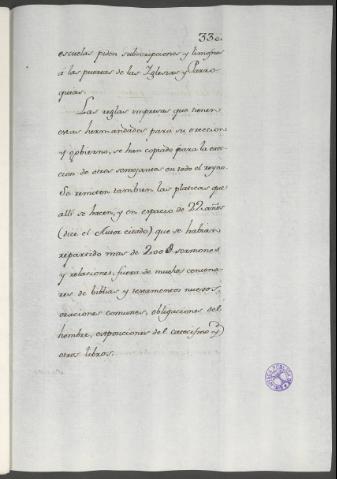 330.
escuelas piden subscripciones y limosnas
á las puertas de las Iglesias y Parro
quias.
Las reglas impresas que tienen
estas hermandades para su ereccion
y gobierno, se han copiado para la erec
cion de otras semejantes en todo el reyno.
Se remiten tambien las platicas que
alli se hacen, y en espacio de 22 años
(dice el Autor citado) que se habian
repartido mas de 200 sermones
y relaciones, fuera de muchos centena
res de biblias y testamentos nuevos,
oraciones comunes, obligaciones del
hombre, exposiciones del catecismo y
otros libros.